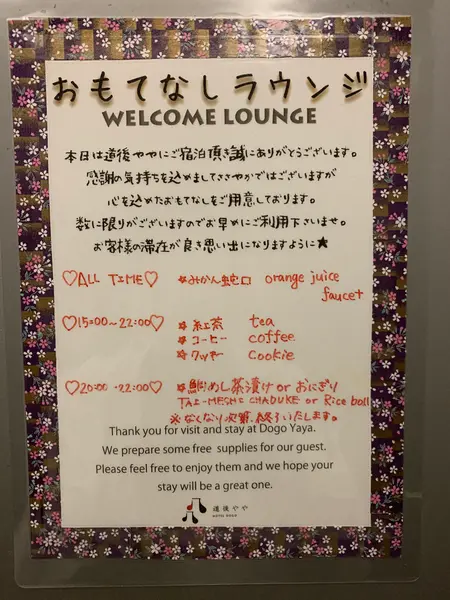 おもてなしラウンジ
WELCOME LOUNGE
本日は道後ややにご宿泊頂き誠にありがとうございます。
感謝の気持ちを込めましてささやかではございますが
心を込めたおもてなしをご用意しております。
数に限りがございますのでお早めにご利用下さいませ。
お客様の滞在が良き思い出になりますように★
♡ALL TIME♡ ☆みかん蛇口 orange juice
faucet
♡15:00~22:00♡ ☆紅茶 tea
☆コーヒー coffee
☆クッキー cookie
♡20:00~22:00♡ ☆鯛めし茶漬け or おにぎり
TAI-MESHI CHADUKE or Rice ball
※なくなり次第、終了いたします。
Thank you for visit and stay at Dogo Yaya.
We prepare some free supplies for our guest.
Please feel free to enjoy them and we hope your
stay will be a great one.
道後やや
HOTEL DOGO